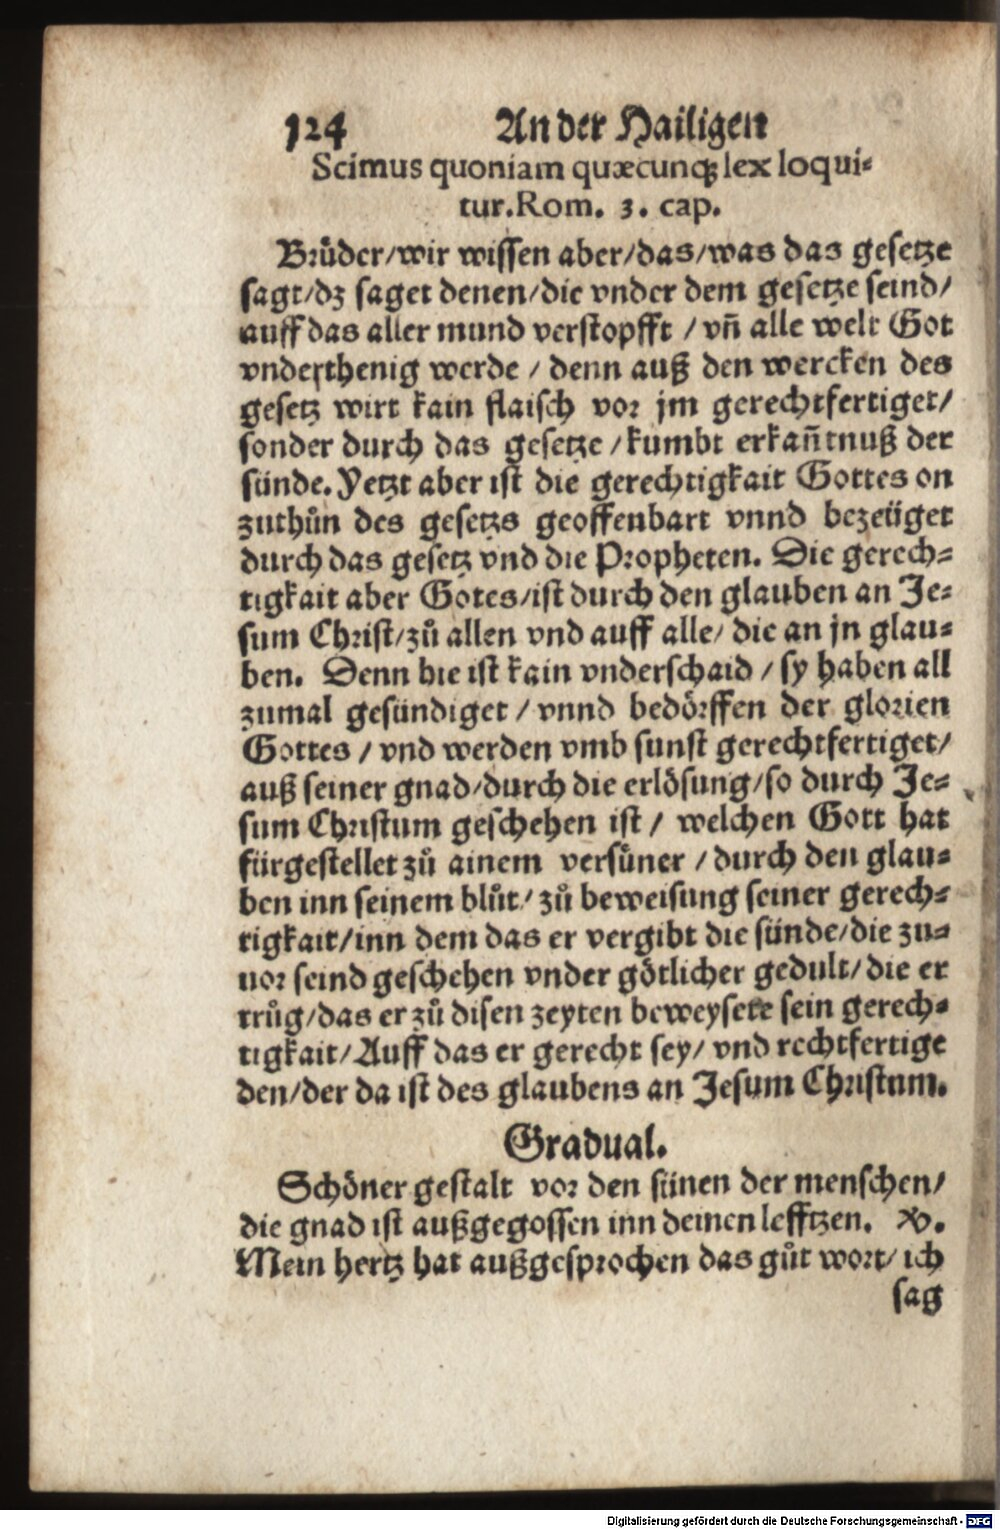 124 An der Hailigen
Scimus quoniam quæcunqꝫ lex loqui-
tur. Rom. 3. cap.
Bruͤder/wir wissen aber/das/was das gesetze
sagt/dz saget denen/die vnder dem gesetze seind/
auff das aller mund verstopfft / vn̄ alle welt Got
vnderthenig werde / denn auß den wercken des
gesetz wirt kain flaisch vor jm gerechtfertiget/
sonder durch das gesetze /kumbt erkan̄tnuß der
sünde. Yetzt aber ist die gerechtigkait Gottes on
zuthuͦn des gesetzs geoffenbart vnnd bezeüget
durch das gesetz vnd die Propheten. Die gerech-
tigkait aber Gotes/ist durch den glauben an Je-
sum Christ/zuͦ allen vnd auff alle/ die an jn glau-
ben. Denn hie ist kain vnderschaid / sy haben all
zumal gesündiget / vnnd bedoͤrffen der glorien
Gottes / vnd werden vmb sunst gerechtfertiget/
auß seiner gnad/durch die erloͤsung/so durch Je-
sum Christum geschehen ist / welchen Gott hat
fürgestellet zuͦ ainem versuͤner / durch den glau-
ben inn seinem bluͦt/ zuͦ beweisung seiner gerech-
tigkait/inn dem das er vergibt die sünde/die zu-
uor seind geschehen vnder goͤtlicher gedult/die er
truͦg/das er zuͦ disen zeyten beweysete sein gerech-
tigkait/Auff das er gerecht sey/ vnd rechtfertige
den/der da ist des glaubens an Jesum Christum.
Gradual.
Schoͤner gestalt vor den sünen der menschen/
die gnad ist außgegossen inn deinen lefftzen. ℣.
Mein hertz hat außgesprochen das guͦt wort/ ich
sag
Digitalisierung gefördert durch die Deutsche Forschungsgemeinschaft - DFG